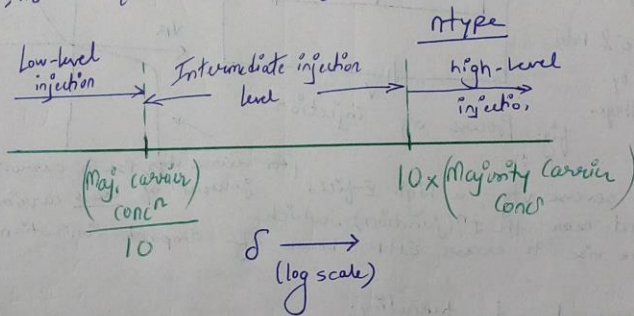 ntype
Low-level
injection
Intermediate injection
level
high-level
injectio,
(Maj. carrier
concⁿ)
10
10 × (Majority Carrier
Concⁿ)
δ →
(log scale)